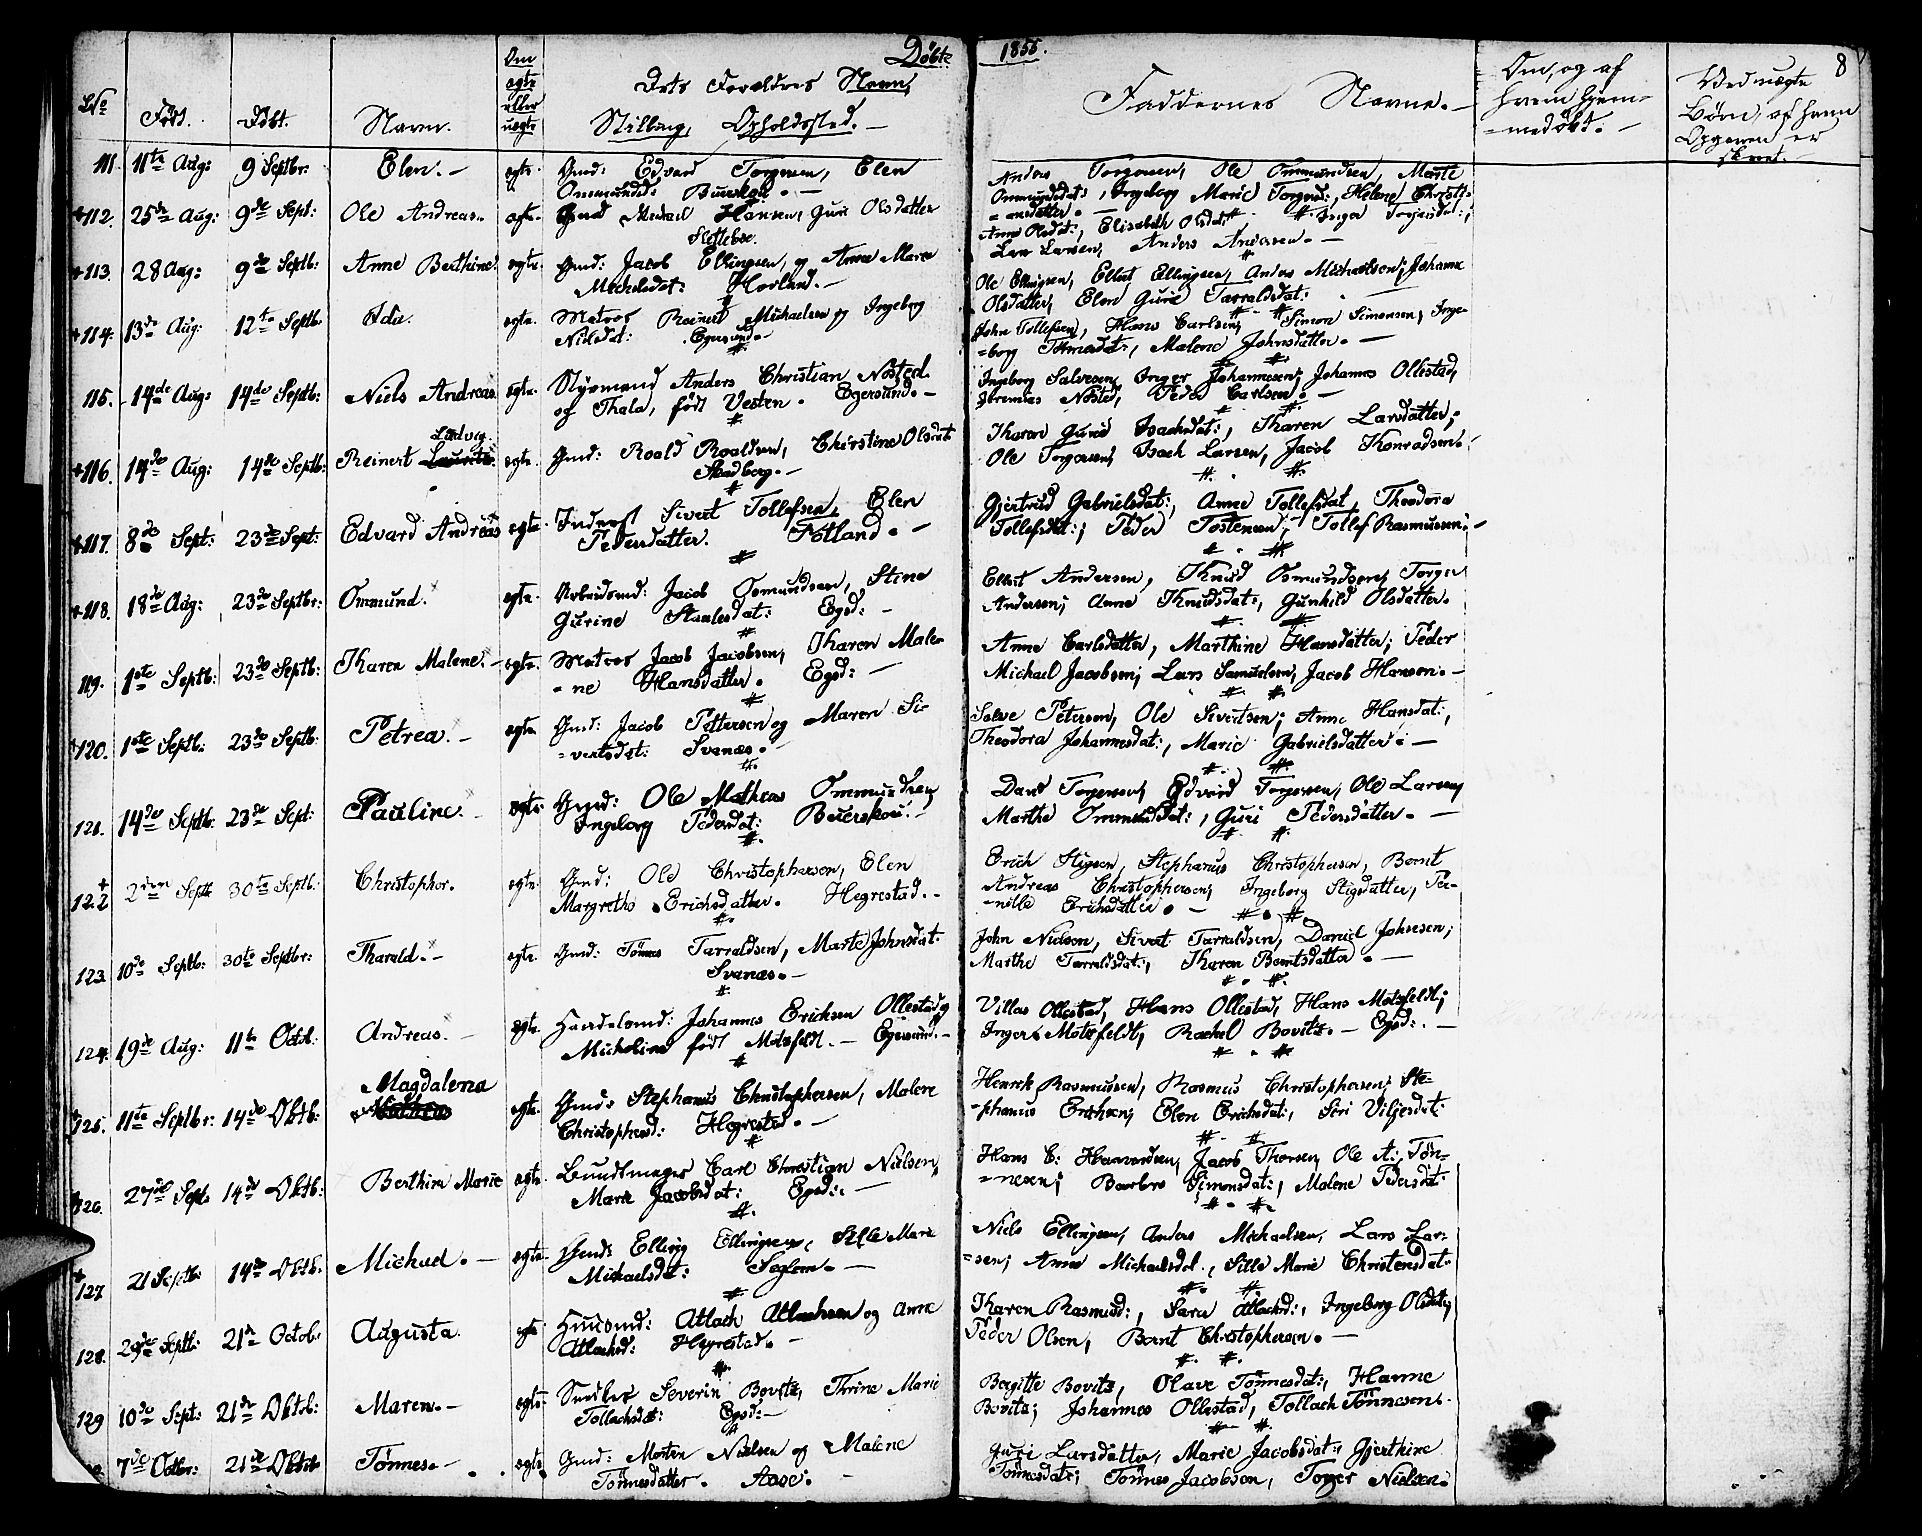 Døbte 1855. 8
No Født. Døbt. Navn. Om egte eller uegte Dets Forældres Navn, Stilling, Opholdssted. — Faddernes Navne. — Om, og af hvem hjem- =medøbt. — Ved uægte Børn, af hvem Opgaven er skreet. —
111. 11te Aug: 9 Septbr: Elen. — egte. Gmd: Edvard Torgersen, Elen
Ommundsd:
Anders Torgersen, Ole Ommundsen, Marte
Ommundsdat:, Ingeborg Marie Torgersd:, Helene Christi-
=ansdatter. —
+112. 25de Aug: 9de Sept: Ole Andreas. egte. Gmd Michael Hansen, Guri Olsdatter
Slettebøe.
Anne Olsdat:, Elisabeth Olsdat: Inger Torjersdat:,
Lars Larsen, Anders Andersen. —
+113. 28 Aug: 9de Septb: Anne Berthine. egte. Gmd: Jacob Ellingsen, og Anne Marie
Michelsdat: Hovland. —
Ole Ellingsen, Ellert Ellingsen, Anders Michaelsen, Johanne
Olsdatter, Elen Gurie Tarraldsdat:
+114. 13de Aug: 12te Septb: Ida. egte. Matros Reinert Michaelsen og Ingeborg
Nielsdat: Egersund. —
John Tollefsen, Hans Carlsen, Simon Simonsen, Inge-
=borg Tømesdat:, Malene Johnsdatter. —
115. 14de Aug: 14de Septb: Niels Andreas. egte. Styrmand Anders Christian Nøsted
og Thala, født Vesten. Egersund. —
Ingeborg Salvesen, Inger Johannesen, Johannes Ollestad,
Jeremias Nøsted, Peder Carlsen. —
+116. 14de Aug: 14de Septb: Reinert Ludvig egte. Gmd: Roald Roaldsen, Christine Olsdat
Skadberg. —
Karen Gurie Isachsdat:, Karen Larsdatter,
Ole Torgersen, Isach Larsen, Jacob Konradsen.
+117. 8de Sept: 23de Sept: Edvard Andreas egte. Inderst Sivert Tollefsen, Elen
Pedersdatter. Fotland. —
Gjertrud Gabrielsdat:, Anne Tollefsdat, Theodora
Tollefsdat:, Peder Tostensen, Tollef Rasmussen. —
+118. 18de Aug: 23de Septbr: Ommund. egte. Arbeidsmd: Jacob Osmundsen, Stine
Gurine Staalesdat: Egsd: —
Ellert Andersen, Knud Osmundsen, Torger
Andersen, Anne Knudsdat:, Gunhild Olsdatter.
119. 1ste Septb: 23de Septb: Karen Malene. — egte. Matros Jacob Jacobsen, Karen Male-
=ne Hansdatter. Egsd: —
Anne Carlsdatter, Marthine Hansdatter, Peder
Michael Jacobsen, Lars Samuelsen, Jacob Hansen. —
+120. 1ste Septb: 23de Septb: Petrea. — egte. Gmd: Jacob Pettersen og Maren Si-
=vertsdat: Svanæs. —
Salve Petersen, Ole Sivertsen, Anne Hansdat:,
Theodora Johannesdat:, Marie Gabrielsdatter. —
121. 14de Septb: 23de Sept: Pauline. — egte. Gmd: Ole Mathias Ommundsen,
Ingeborg Pedersdat:
Dan: Torgersen, Edvard Torgersen, Ole Larsen,
Marthe Ommundsdat:, Guri Pedersdatter. —
+122 2den Septb 30te Septb: Christopher. egte. Gmd: Ole Christophersen, Elen
Margrethe Erichsdatter. Hegrestad. —
Erich Stigsen, Stephanus Christophersen, Bernt
Andreas Christophersen, Ingeborg Stigsdatter, Per-
=nille Erichsdatter. —
123. 10de Septb: 30te Septbr: Tharald. — egte. Gmd: Tønnes Tarraldsen, Marte Johnsdat.
Svanæs. —
John Nielsen, Sivert Tarraldsen, Daniel Johnsen,
Marthe Tarraldsdat:, Karen Berntsdatter. —
124. 19de Aug: 11te Octob: Andreas. egte. Handelsmd: Johannes Erichsen Ollestad og
Micheline født Motzfeldt. — Egersund. —
Villas Ollestad, Hans Ollestad, Hans Motzfeldt,
Inger Motzfeldt, Rachel Bovitz. — Egsd: —
+125. 11te Septbr: 14de Oktb: Magdalena egte. Gmd: Stephanus Christophersen, Malene
Christophersd: Hegrestad. —
Henrik Rasmussen, Rasmus Christophersen, Ste-
=phanus Erichsen, Elen Erichsdat:, Siri Viljesdat:
126. 27de Sept 14de Oktb: Berthine Marie egte. Bundtmager Carl Christian Nielsen,
Maria Jacobsdat: Egsd: —
Hans C: Haavardsen, Jacob Thorsen, Ole A: Tøn-
=nesen, Barbro Simonsdat:, Malene Pedersdat:
+127 21 Septb: 14de Oktb: Michael. — egte. Gmd: Elling Ellingsen, Sille Marie
Michaelsdat: Seglem. —
Niels Ellingsen, Anders Michaelsen, Lars Lar-
=sen, Anne Michaelsdat., Sille Marie Christensdat.
128. 29de Septb: 21de Octob: Augusta. egte Huusmd: Atlach Atlachsen og Anne
Atlachsd: Hegrestad. —
Karen Rasmusd:, Sara Atlachsd:, Ingeborg Olsdat,
Peder Olsen, Bernt Christophersen. —
129 10de Sept: 21de Oktob: Maren. — egte. Snedker Severin Bovitz, Thrine Marie
Tollachsdat: Egsd: —
Bergitte Bovitz, Olave Tønnesdat:, Hanne
Bovitz, Johannes Ollestad, Tollach Tønnesen.
7de Octbr: 21de Oktob Tønnes. — egte. Gmd: Morten Nielsen og Malene
Tønnesdatter. Aase. —
Guri Larsdatter, Marie Jacobsdat:, Gjerthine
Tønnesdat:, Tønnes Jacobsen, Torger Nielsen.